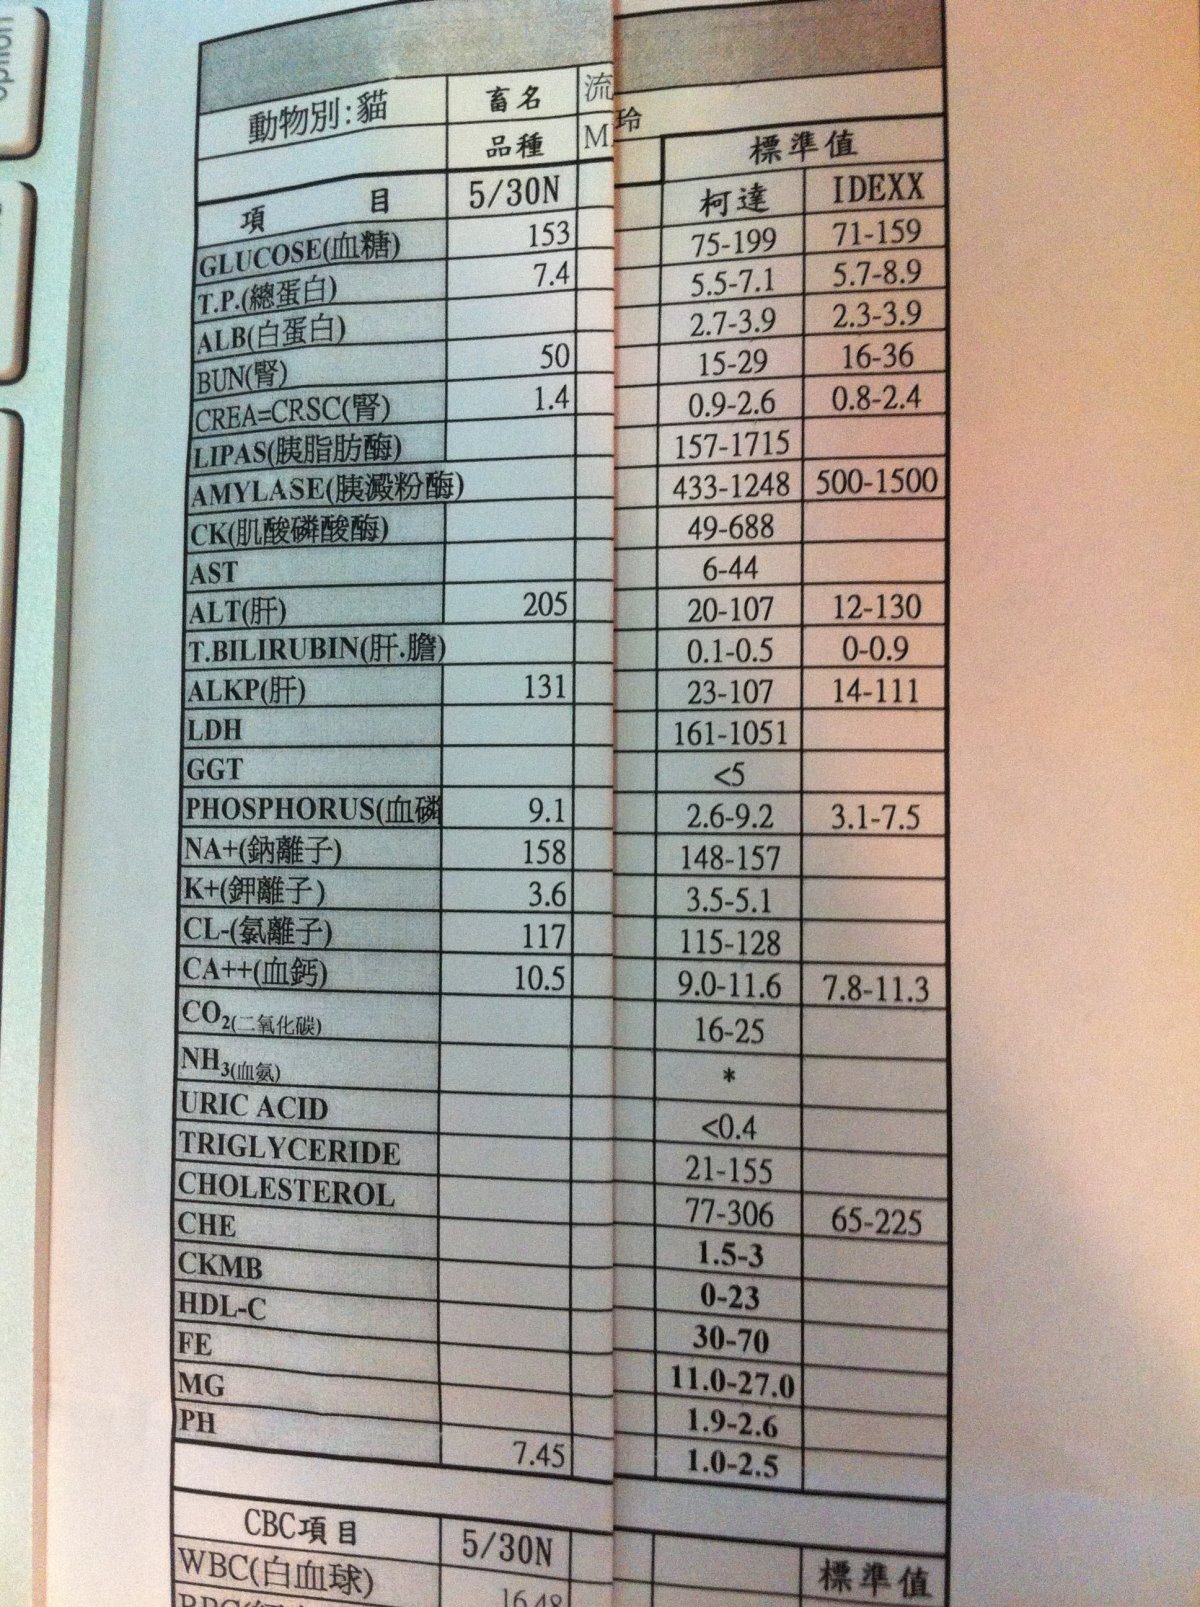 option
動物別:貓 畜名 流
玲
品種 M
標準值
項 目 5/30N 柯達 IDEXX
GLUCOSE(血糖) 153 75-199 71-159
T.P.(總蛋白) 7.4 5.5-7.1 5.7-8.9
ALB(白蛋白) 2.7-3.9 2.3-3.9
BUN(腎) 50 15-29 16-36
CREA=CRSC(腎) 1.4 0.9-2.6 0.8-2.4
LIPAS(胰脂肪酶) 157-1715
AMYLASE(胰澱粉酶) 433-1248 500-1500
CK(肌酸磷酸酶) 49-688
AST 6-44
ALT(肝) 205 20-107 12-130
T.BILIRUBIN(肝.膽) 0.1-0.5 0-0.9
ALKP(肝) 131 23-107 14-111
LDH 161-1051
GGT <5
PHOSPHORUS(血磷 9.1 2.6-9.2 3.1-7.5
NA+(鈉離子) 158 148-157
K+(鉀離子) 3.6 3.5-5.1
CL-(氯離子) 117 115-128
CA++(血鈣) 10.5 9.0-11.6 7.8-11.3
CO2(二氧化碳) 16-25
NH3(血氨) *
URIC ACID <0.4
TRIGLYCERIDE 21-155
CHOLESTEROL 77-306 65-225
CHE 1.5-3
CKMB 0-23
HDL-C 30-70
FE 11.0-27.0
MG 1.9-2.6
PH 7.45 1.0-2.5
CBC項目 5/30N 標準值
WBC(白血球) 16.48